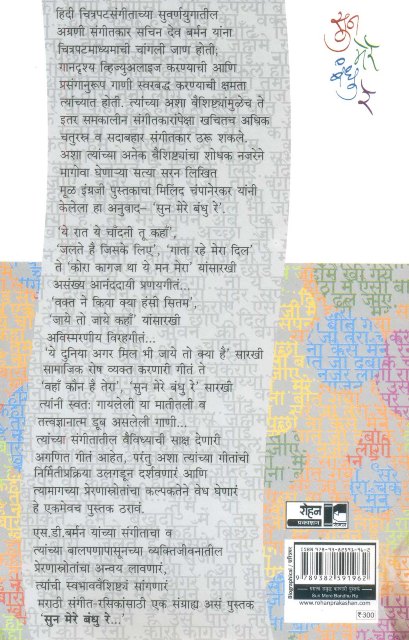 हिंदी चित्रपटसंगीताच्या सुवर्णयुगातील
अग्रणी संगीतकार सचिन देव बर्मन यांना
चित्रपटमाध्यमाची चांगली जाण होती;
गानदृश्य व्हिज्युअलाइज करण्याची आणि
प्रसंगानुरूप गाणी स्वरबद्ध करण्याची क्षमता
त्यांच्यात होती. त्यांच्या अशा वैशिष्ट्यांमुळेच ते
इतर समकालीन संगीतकारांपेक्षा खचितच अधिक
चतुरस्र व सदाबहार संगीतकार ठरू शकले.
अशा त्यांच्या अनेक वैशिष्ट्यांचा शोधक नजरेने
मागोवा घेणाऱ्या सत्या सरन लिखित
मूळ इंग्रजी पुस्तकाचा मिलिंद चंपानेरकर यांनी
केलेला हा अनुवाद– ‘सुन मेरे बंधु रे’.
‘ये रात ये चाँदनी तू कहाँ’,
‘जलते है जिसके लिए’, ‘गाता रहे मेरा दिल’
ते ‘कोरा कागज था ये मन मेरा’ यांसारखी
असंख्य आनंददायी प्रणयगीतं...
‘वक्त ने किया क्या हंसी सितम’,
‘जाये तो जाये कहाँ’ यांसारखी
अविस्मरणीय विरहगीतं...
‘ये दुनिया अगर मिल भी जाये तो क्या है’ सारखी
सामाजिक रोष व्यक्त करणारी गीतं ते
‘वहाँ कौन है तेरा’, ‘सुन मेरे बंधु रे’ सारखी
त्यांनी स्वतः गायलेली या मातीतली व
तत्त्वज्ञानात्म डूब असलेली गाणी...
त्यांच्या संगीतातील वैविध्याची साक्ष देणारी
अगणित गीतं आहेत, परंतु अशा त्यांच्या गीतांची
निर्मितीप्रक्रिया उलगडून दर्शवणारं आणि
त्यामागच्या प्रेरणास्रोतांचा कल्पकतेने वेध घेणारं
हे एकमेवच पुस्तक ठरावं.
एस.डी.बर्मन यांच्या संगीताचा व
त्यांच्या बालपणापासूनच्या व्यक्तिजीवनातील
प्रेरणास्रोतांचा अन्वय लावणारं,
त्यांची स्वभाववैशिष्ट्यं सांगणारं
मराठी संगीत-रसिकांसाठी एक संग्राह्य असं पुस्तक
‘सुन मेरे बंधु रे...’
सुन
मेरे
बंधु
रे
रोहन
प्रकाशन
Biographical / चरित्रपर
ISBN 978-93-82591-96-2
9 789382 591962
Sun Mere Bandhu Re
www.rohanprakashan.com
₹300